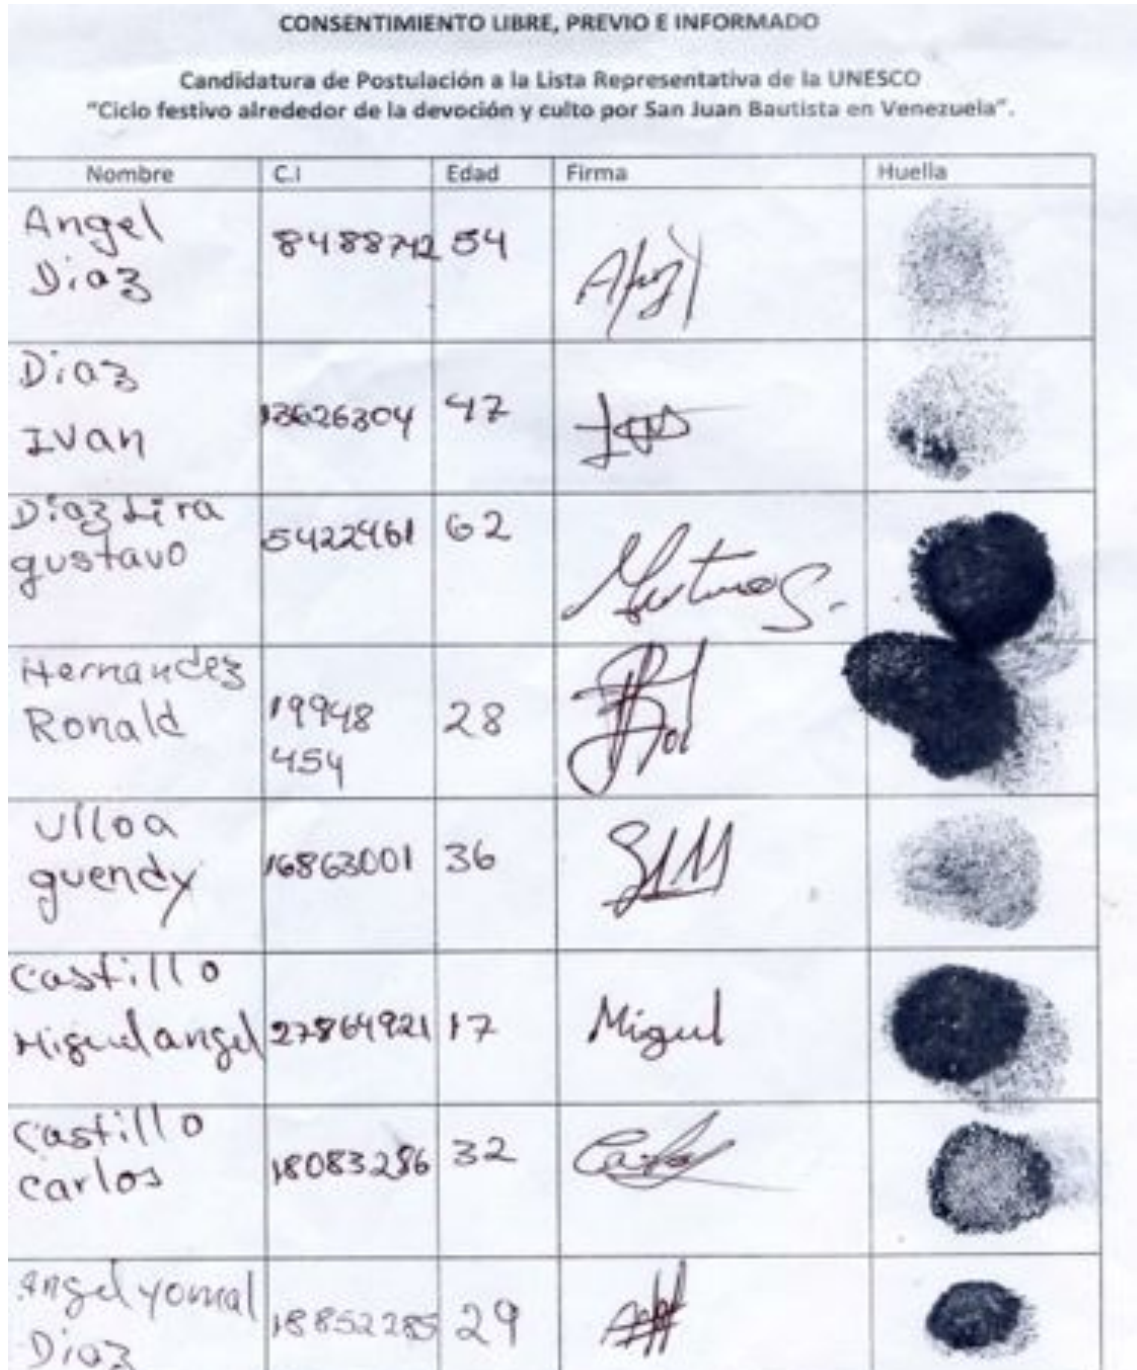 CONSENTIMIENTO LIBRE, PREVIO E INFORMADO
Candidatura de Postulación a la Lista Representativa de la UNESCO
"Ciclo festivo alrededor de la devoción y culto por San Juan Bautista en Venezuela".
Nombre C.I Edad Firma Huella
Angel 8488742 54
Diaz
Diaz 13626304 47
Ivan
Diaz Lira 5422461 62
gustavo
Hernandez
Ronald 19948 28
454
Ulloa
guendy 16863001 36
Castillo
Miguel angel 27864921 17 Miguel
Castillo
Carlos 18083286 32
Angel yomal 18852285 29
Diaz